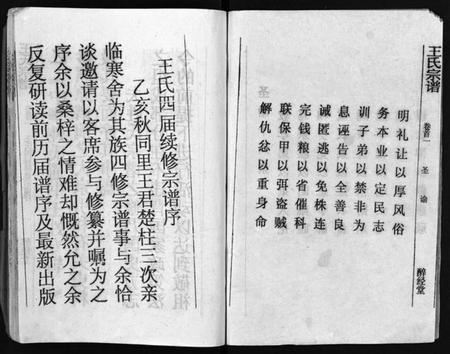 王氏宗谱
卷首一
圣谕
醉经堂
明礼让以厚风俗
务本业以定民志
训子弟以禁非为
息诬告以全善良
诫匿逃以免株连
完钱粮以省催科
联保甲以弭盗贼
解仇忿以重身命
王氏四届续修宗谱序
乙亥秋同里王君楚柱三次亲
临寒舍为其族四修宗谱事与余恰
谈邀请以客席参与修纂并嘱为之
序余以桑梓之情难却慨然允之余
反复研读前历届谱序及最新出版